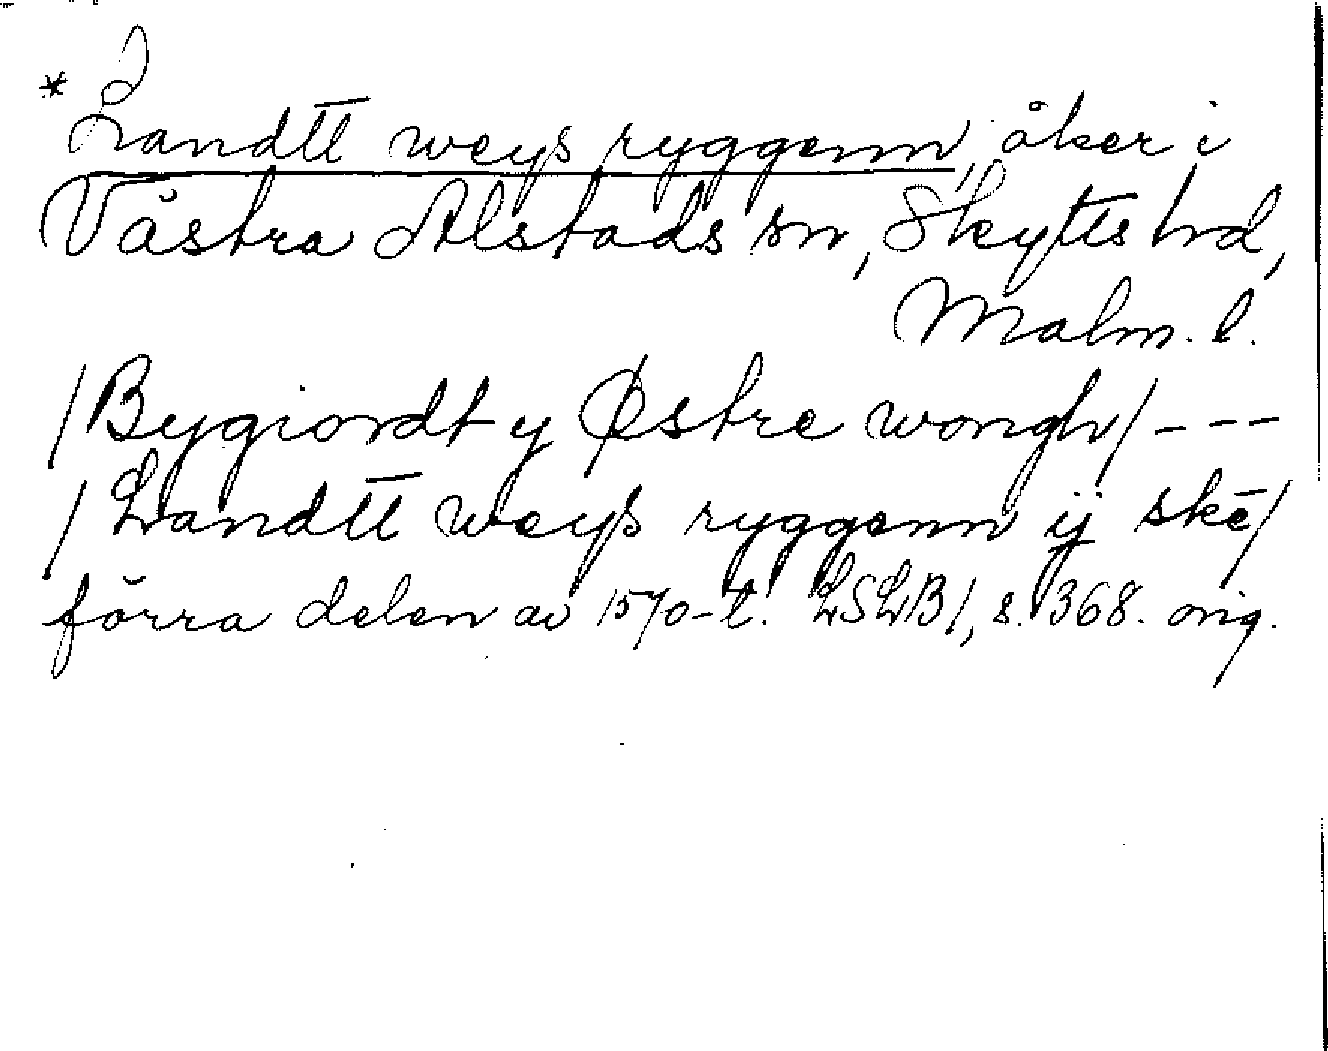 * Landtt weys ryggenn, åker i
Västra Alstads sn, Skytts hd,
Malm. l.
/Bygiordt y Østre wongh/ ---
/Landtt weyss ryggenn ij skē/
förra delen av 1570-t. LSLB1, s. 368. orig.